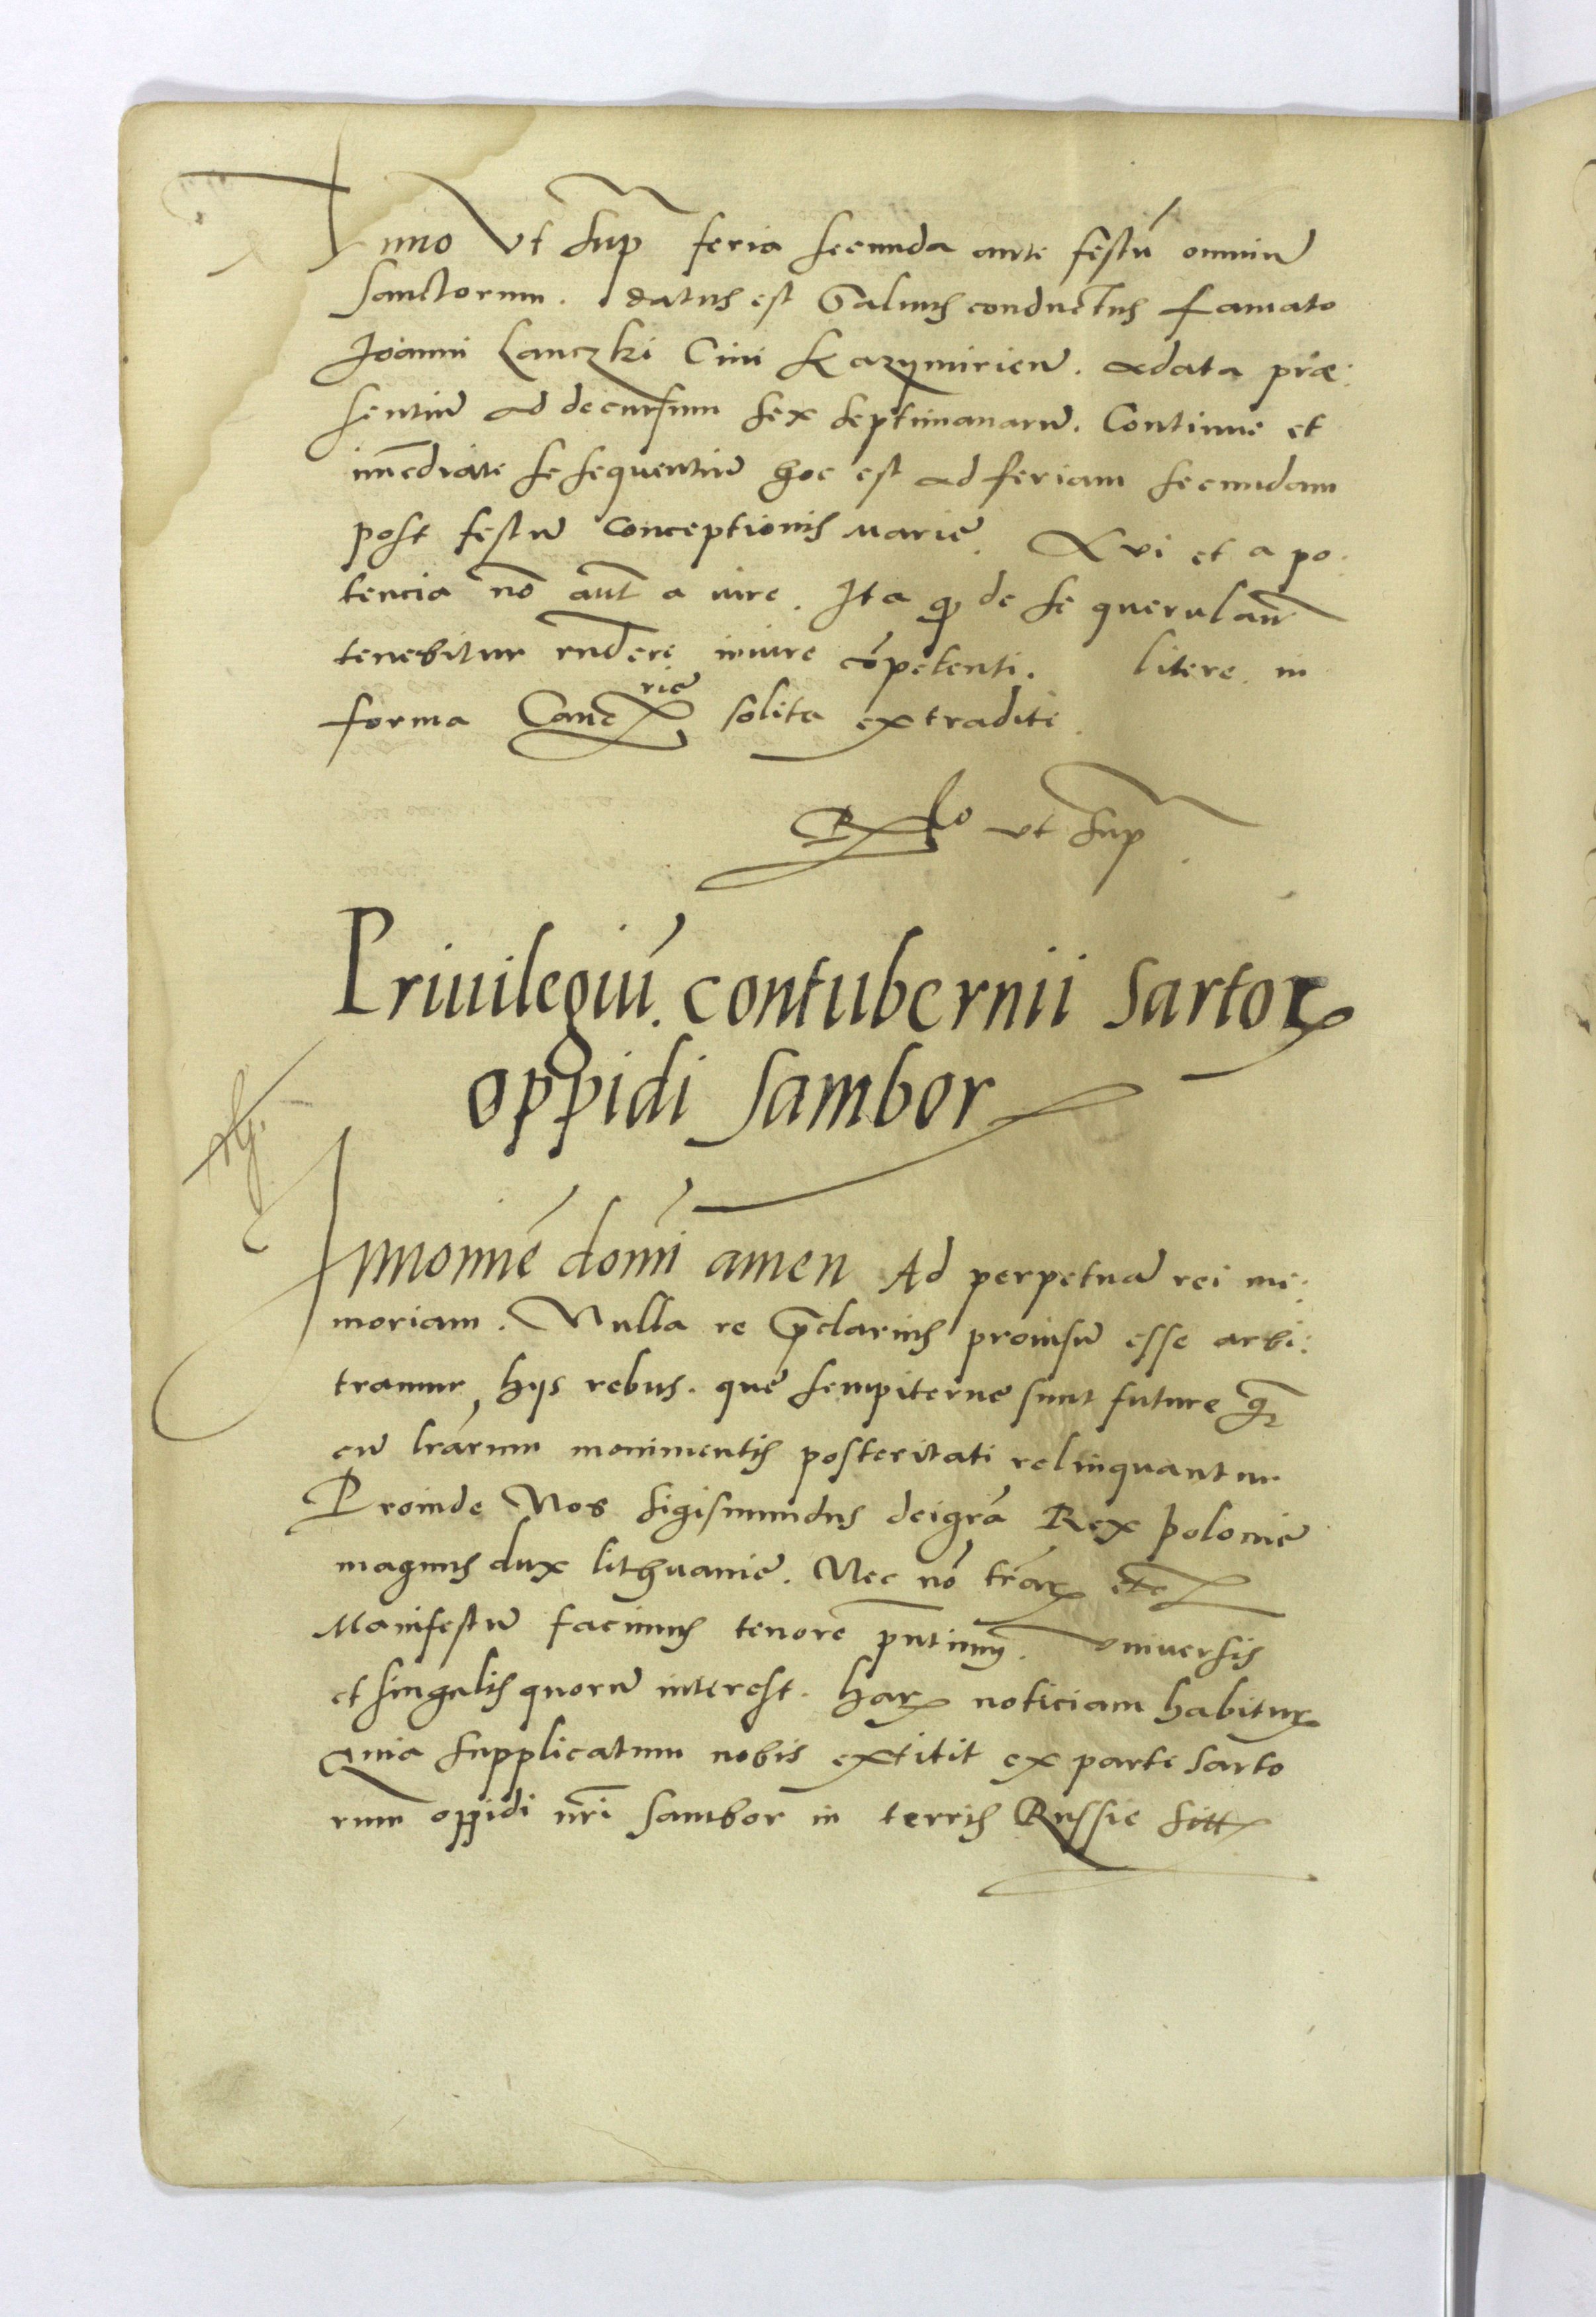 Anno vt sup feria secunda ante festū omniū
sanctorum. datus est Saluus conductus famato
Joanni Lanczki Ciui Kazymirien̄. a data præ:
sentiū ad decursum sex septimanarū. Continue et
im̄ediate se sequentiū hoc est ad feriam secundam
post festū Conceptionis Marie. A vi et a po:
tencia nō aūt a iure. Ita ꝙ de se querulan̄
tenebitur rn̄dere in iure cōpetenti. litere in
forma Canc̄rie solita extradite.
Rlo vt sup
Priuilegiū contubernii sartoꝝ
oppidi Sambor
In noīe domī amen Ad perpetuā rei me:
moriam. Nulla re p̄clarius prouisū esse arbi:
tramur hys rebus. que sempiterne sunt future
cū lrārum monimentis posteritati relinquantur
Proinde Nos Sigismundus dei gr̄a Rex Polonie
magnus dux Lithuanie. Nec nō trāꝝ etc
Manifestū facimus tenore pn̄tium. vniuersis
et singulis quorū interest. haꝝ noticiam habituꝝ
Quia supplicatum nobis extitit ex parte Sarto
rum oppidi nr̄i Sambor in terris Russie sitt